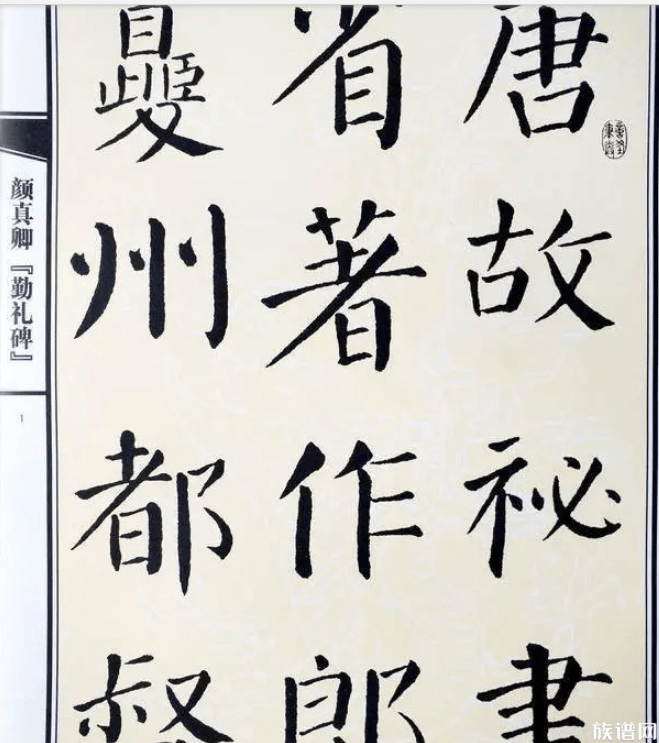 唐故祕書
省著作郎
夔州都督
颜真卿『勤礼碑』
1
族谱网